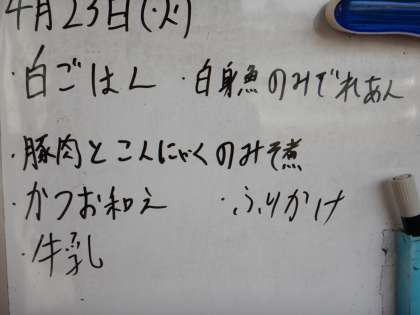 4月23日(火)
・白ごはん ・白身魚のみぞれあん
・豚肉とこんにゃくのみそ煮
・かつお和え ・ふりかけ
・牛乳